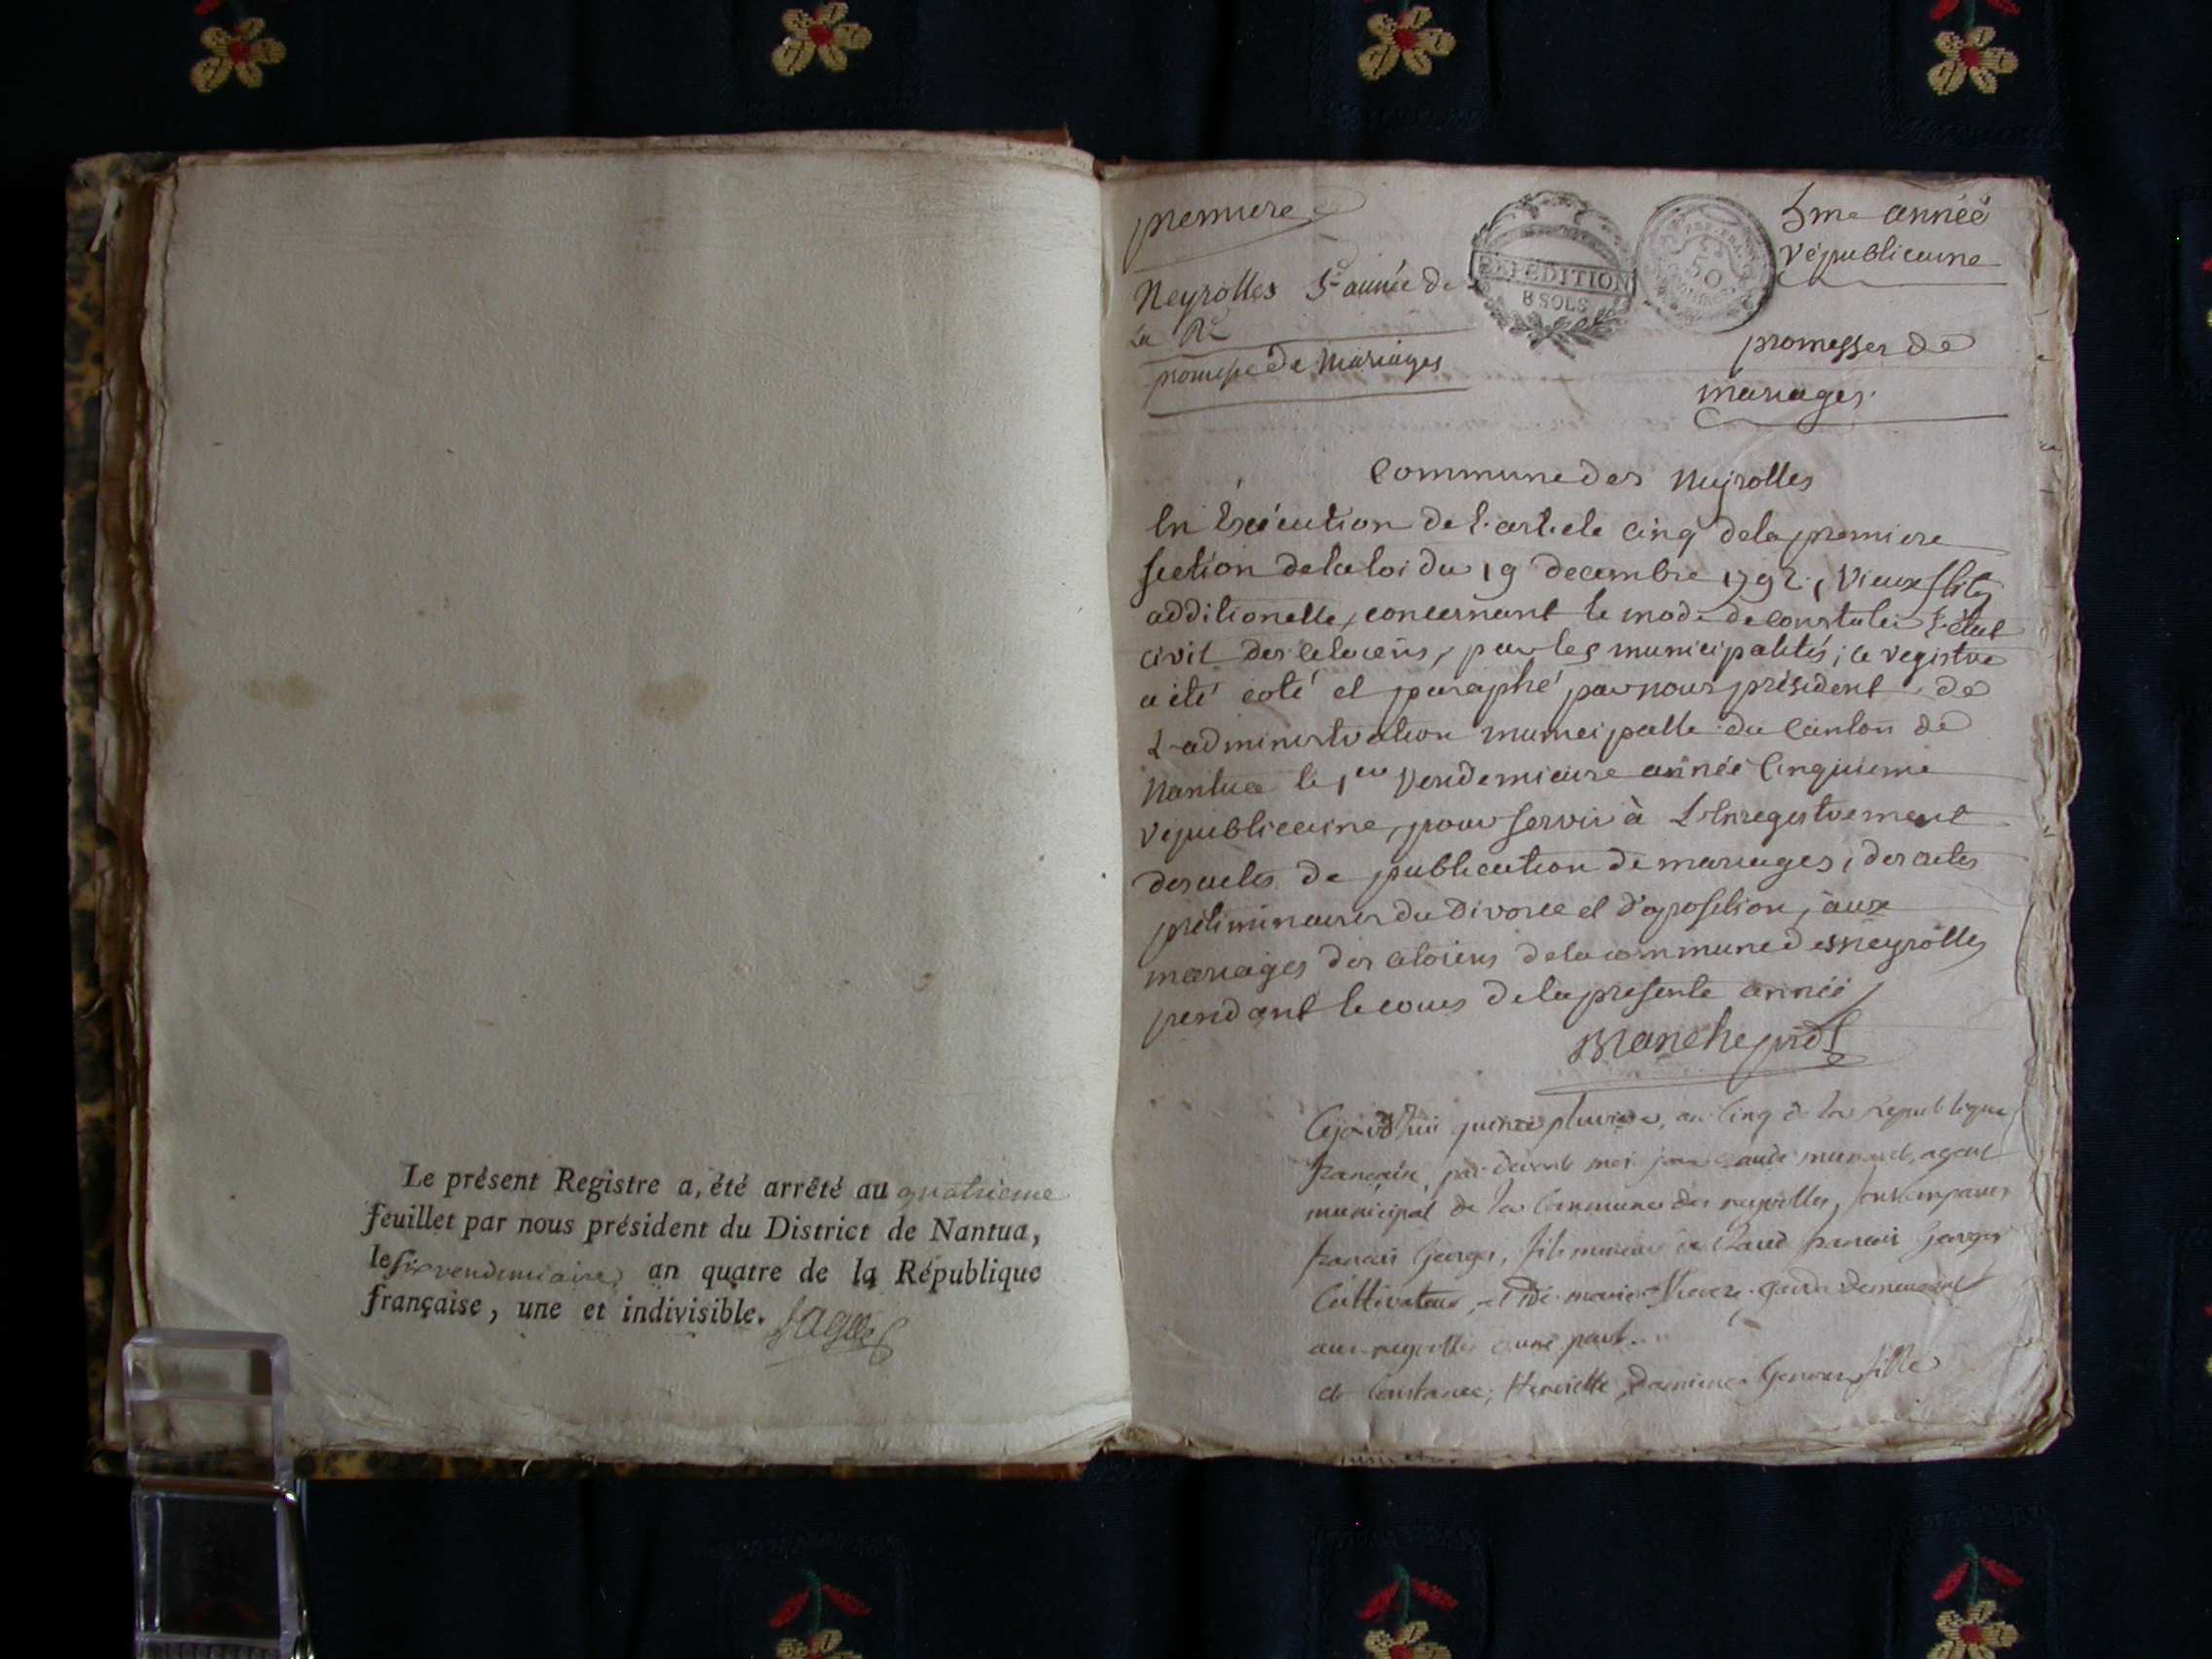 Le présent Registre a, été arrêté au quatrieme
feuillet par nous président du District de Nantua,
le six vendemiaire, an quatre de la République
française, une et indivisible.
premiere
5me année
républicaine
EXPÉDITION
8 SOLS
50
Neyrolles 5e année de
La Re
promesse de Mariages
promesses de
mariages.
Commune des Neyrolles
En Exécution de l'article cinq de la premiere
section de la loi du 19 decembre 1792, vieux stile
additionelle, concernant le mode de constater l'état
civil des citoiens, par les municipalités; ce registre
a été coté et paraphé par nous président de
L'administration municipalle du Canton de
Nantua le 1er Vendemiaire année Cinquieme
républicaine, pour servir à L'Enregistrement
des actes de publication de mariages, des actes
préliminaires du Divorce et d'oposition, aux
mariages des citoiens de la commune des neyrolles
pendant le cours de la presente année
Cejourd'hui quinze pluviose, an Cinq de la Republique
francaise, par devant moi jean claude agent
municipal de la Commune des neyrolles, sont comparus
francois Georges, fils mineur de Claud francois Georges
Cultivateur, et de marie demeurant
aux neyrolles d'une part.
et Constance, Henriette, fille